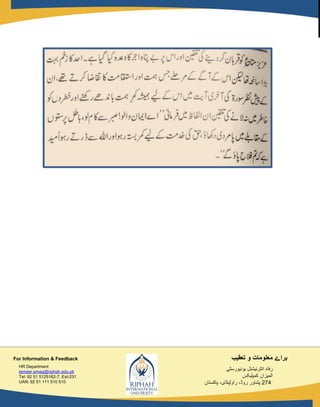 عزیز متاع کو قربان کر دینے کی تلقین اور اس پر بے پناہ اجر کا وعدہ کیا گیا ہے۔ احد کا زخم بہت
بڑا سانحہ تھا لیکن اس کے آگے کے مرحلے جس ہمت اور استقامت کا تقاضا کرتے تھے، ان
کے پیش نظر سورۃ کی آخری آیت میں اس کے لیے ہمیشہ کمر ہمت باندھے رکھنے اور خطروں کو
خاطر میں نہ لانے کی تلقین ان الفاظ میں فرمائی ”اے ایمان والو! صبر سے کام لو، باطل پرستوں
کے مقابلے میں پامردی دکھاؤ، حق کی خدمت کے لیے کمر بستہ رہو اور اللہ سے ڈرتے رہو، اُمید
ہے کہ تم فلاح پاؤ گے“۔
For Information & Feedback
HR Department
tameer.emag@riphah.edu.pk
Tel: 92 51 5125162-7, Ext-231
UAN: 92 51 111 510 510
RIPHAH
INTERNATIONAL
UNIVERSITY
براۓ معلومات و تعقیب
رفاہ انٹرنیشنل یونیورسٹی
المیزان کمپلیکس
274 پشاور روڈ، راولپنڈی، پاکستان